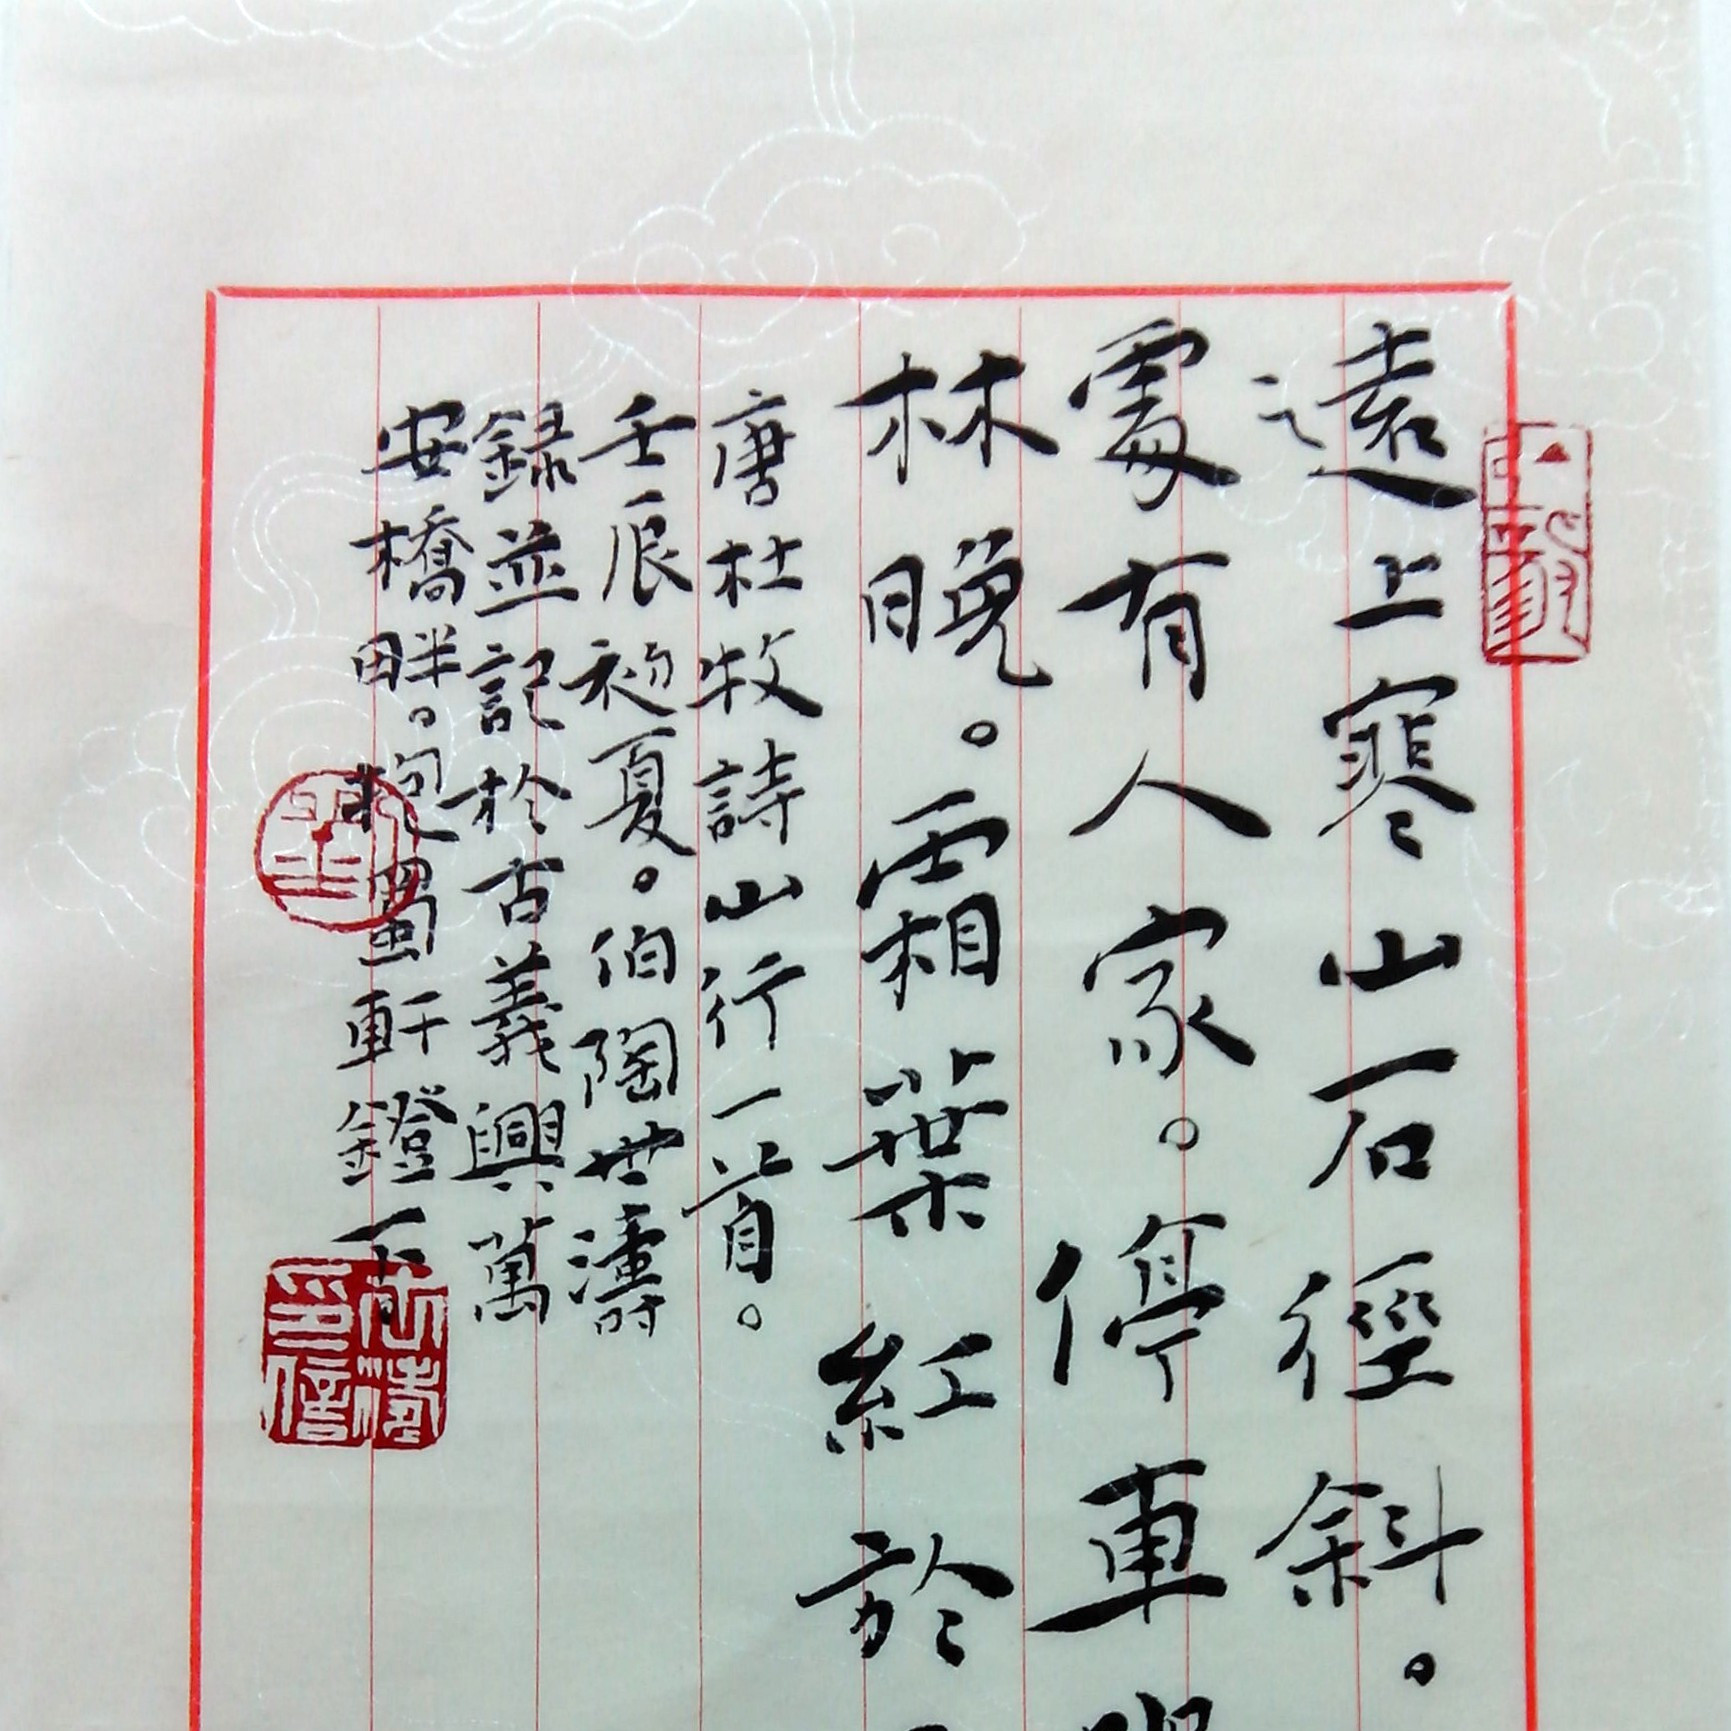 遠上寒山石徑斜。
處有人家。停車
林晚。霜葉紅於
唐杜牧詩山行一首。
壬辰初夏。伯陶世濤
録並記於古義興萬
安橋畔。抱蜀軒鐙下
世濤印信